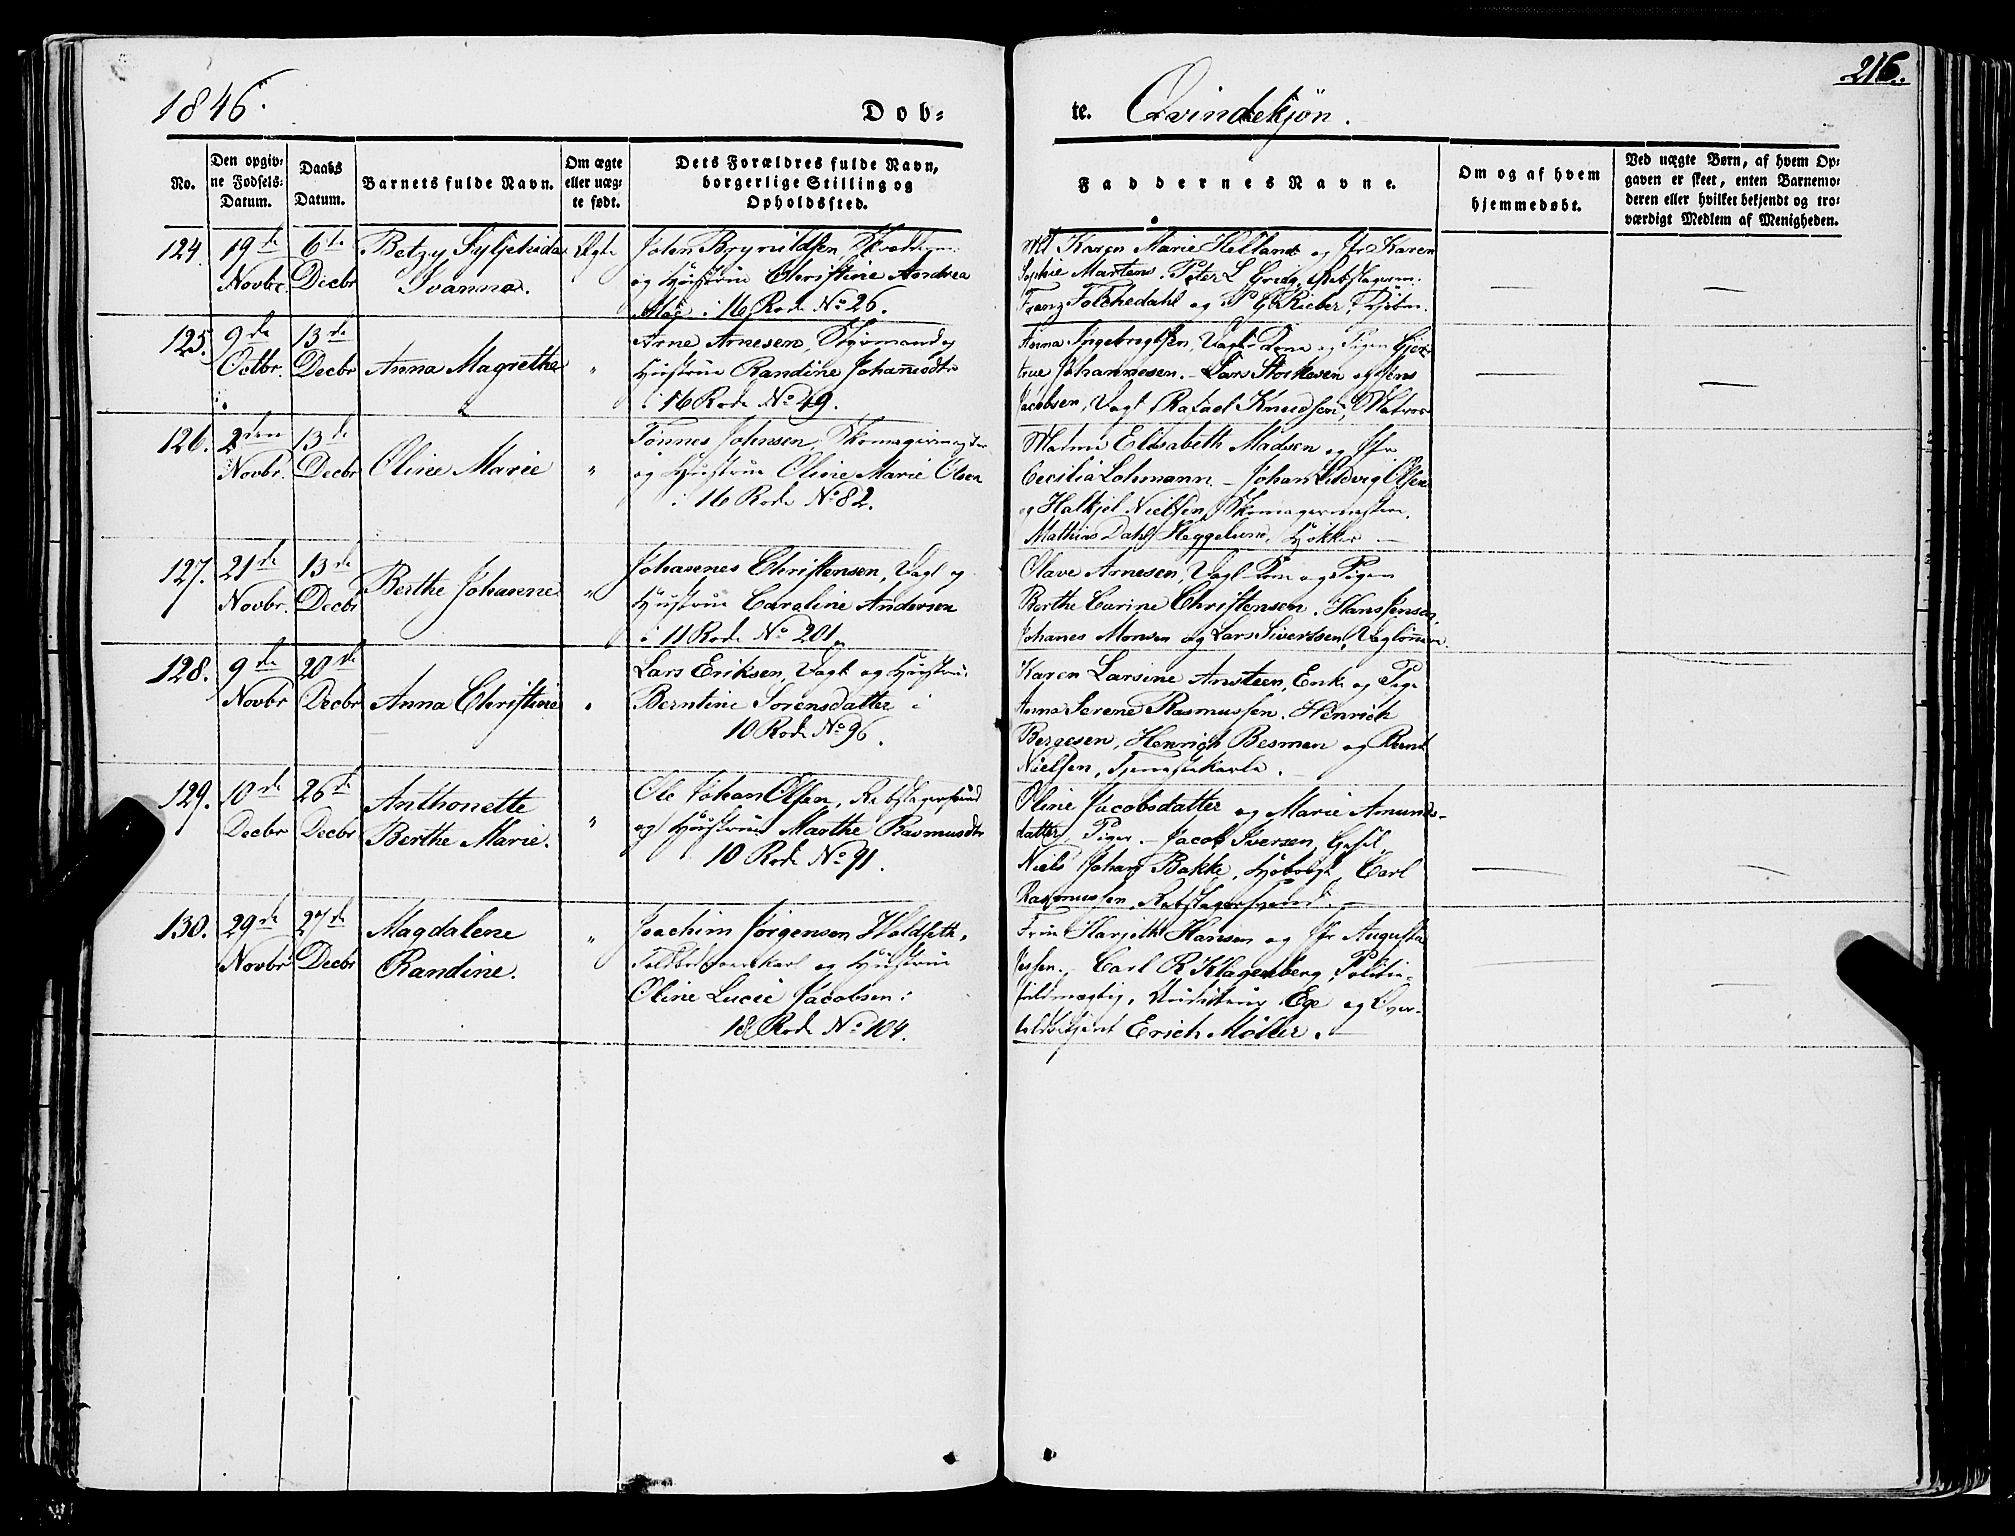 1846.
Døb-
te. Qvindekjøn.
216.
No.
Den opgiv-
ne Fødsels-
Datum.
Daabs
Datum.
Barnets fulde Navn.
Om ægte
eller uæg-
te født.
Dets Forældres fulde Navn,
borgerlige Stilling og
Opholdssted.
Faddernes Navne.
Om og af hvem
hjemmedøbt.
Ved uægte Børn, af hvem Op-
gaven er skeet, enten Barnemo-
deren eller hvilket bekjendt og tro-
værdigt Medlem af Menigheden.
124. 19de
Novbr.
6te
Decbr
Betzy
Svanna.
Ægte
John Brynildsen,
og Hustrue Christine Andrea
i 16 Rode No 26.
Karen Marie Helland og Jfr Karen
Sophie Martens. Peter L Grieg,
Franz og P G Rieber,
125. 9de
Octbr.
13de
Decbr
Anna Magrethe
"
Arne Arnesen, Styrmand og
Hustrue Randine Johannesdtr
i 16 Rode No 49.
Anna Ingebrigtsen, Vagt-Kone og Pigen Gjer-
true Johannesen. – Lars og Jens
Jacobsen, Vagt Rafael Knudsen, Matros
126. 2den
Novbr.
13de
Decbr
Oline Marie
"
Tønnes Johnsen, Skomagermester
og Hustrue Oline Marie Olsen
i 16 Rode No 82.
Madme Elisabeth Madsen og Jfr
Cecilia Lohmann – Johan Ludvig Olsen
og Halkjel Nielsen, Skomagermestere.
Mathias Dahl Heggelund, Høkker –
127. 21de
Novbr.
13de
Decbr
Berthe Johanne
"
Johannes Christensen, Vagt og
Hustrue Caroline Andersen
i 11 Rode No 201.
Olave Arnesen, Vagt-Kone og Pigen
Berthe Carine Christensen. Hans Jensen,
Johanes Monsen og Lars Sivertsen,
128. 9de
Novbr
20de
Decbr
Anna Christine
"
Lars Eriksen, Vagt og Hustrue
Berntine Sørensdatter i
10 Rode No 96.
Karen Larsine Ansteen, Enke og Pige
Anna Serene Rasmussen. Henrich
Bergesen, Henrich Besmen og Bernt
Nielsen, Tjenestekarle. –
129. 10de
Decbr
26de
Decbr
Anthonette
Berthe Marie.
"
Ole Johan Olsen, Rebslagersvend
og Hustrue Marthe Rasmusdtr
10 Rode No 91.
Oline Jacobsdatter og Marie Amunds-
datter, Piger. – Jacob Iversen,
Niels Johan Bakke, Carl
Rasmussen, Rebslagersvend. –
130. 29de
Novbr
27de
Decbr
Magdalene
Randine.
"
Joachim Jørgensen Holdseth,
og Hustrue
Oline Lucie Jacobsen i
18 Rode No 104.
Frue Hansen og Jfr Augusta
Jessen. Carl R Klagenberg, Politie-
fuldmægtig, Ege og Over-
toldbetjent Erich Møller. –